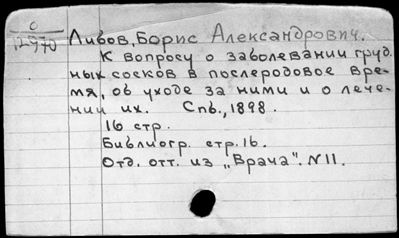 0
12970
Ливов, Борис Александрович.
К вопросу о заболевании груд
ных сосков в послеродовое вре-
мя, об уходе за ними и о лече-
нии их. Спб., 1898.
16 стр.
Библиогр. стр. 16.
Отд. отт. из „Врача". N11.